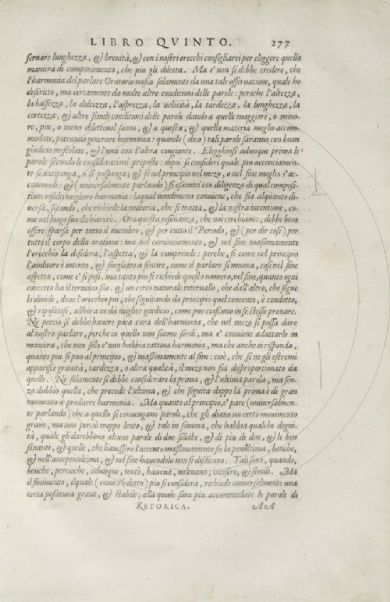 LIBRO QVINTO. 277
seruare lunghezza, & breuità, & con i nostri orecchi consigliarsi per eleggere quella
maniera di componimento, che piu gli diletta. Ma e' non si debbe credere, che
l'harmonia del parlare Oratorio nasca solamente da una tale osseruatione, quale ho
descritto, ma certamente da molte altre conditioni delle parole: perche l'altezza,
la bassezza, la dolcezza, l'asprezza, la uelicità, la tardezza, la lunghezza, la
cortezza, & altre simili conditioni delle parole dando a quelle maggiore, o mino-
re, piu, o meno diletteuol suono, & a questa, & quella materia meglio accom-
modate, potranno generare harmonia: quando (dico) tali parole saranno con buon
giudicio mescolate, & l'una con l'altra congiunte. Elegghinsi adunque prima le
parole secondo le considerationi proposte: dipoi si consideri quale piu acconciamen-
te si anteponga, o si posponga; & se nel principio nel mezo, o nel fine meglio s'ac-
commodi: & (uniuersalmente parlando) si essamini con diligenza di qual composi-
tione risulti maggiore harmonia: laqual nondimeno conuiene, che sia alquanto di-
uersa, secondo, che richiede la materia, che si tratta, & la nostra intentione, co-
me nel luogo suo dichiarerò. Ora questa risonanza, che noi cerchiamo, debbe bene
essere sparsa per tutto il membro, & per tutto il Periodo, & (per dir così) per
tutto il corpo della oratione: ma nel cominciamento, & nel fine massimamente
l'orecchio la disidera, l'aspetta, & la comprende: perche, si come nel principio
l'auditore è intento, & suegliato a sentire, come il parlare si muoua, così nel fine
aspetta, come e' si posi.
Ne percio si debbe hauere poca cura dell'harmonia, che nel mezo si possa dare
al nostro parlare, perche in quello non siamo sordi, ma e' conuiene adattarlo in
maniera, che non solo e' non habbia cattiua harmonia, ma che anche
quanto piu si puo al principio, & massimamente al fine: cioè, che se ne gli estremi
apparisce grauità, tardezza, o altra qualità, il mezo non sia disproportionato da
quelle. Ne solamente si debbe considerare la prima, & l'ultima parola, ma sen-
za dubbio quella, che precede l'ultima, & che seguita doppo la prima è di gran
momento a produrre harmonia. Ma quanto al principio, e' pare (uniuersalmen-
te parlando) che a quello si conuengano parole, che gli diano un certo mouimento
graue, ma non perciò troppo lento, & tali in somma, che habbia qualche degni-
tà, quale gli darebbono alcune parole di due sillabe, & di piu di due, & le ben
sonanti, & quelle, che hauessero l'accento massimamente su la penultima,
& nell'antepenultima, & nel fine hauendolo non si disdicano. Tali sono, quando,
benche, percioche, adunque, & simili. Ma
il finimento, ilquale (come s'è detto) piu si considera, richiede uniuersalmente una
certa posatura graue, & stabile; alla quale sono piu accommodate le parole di
RETORICA. AA